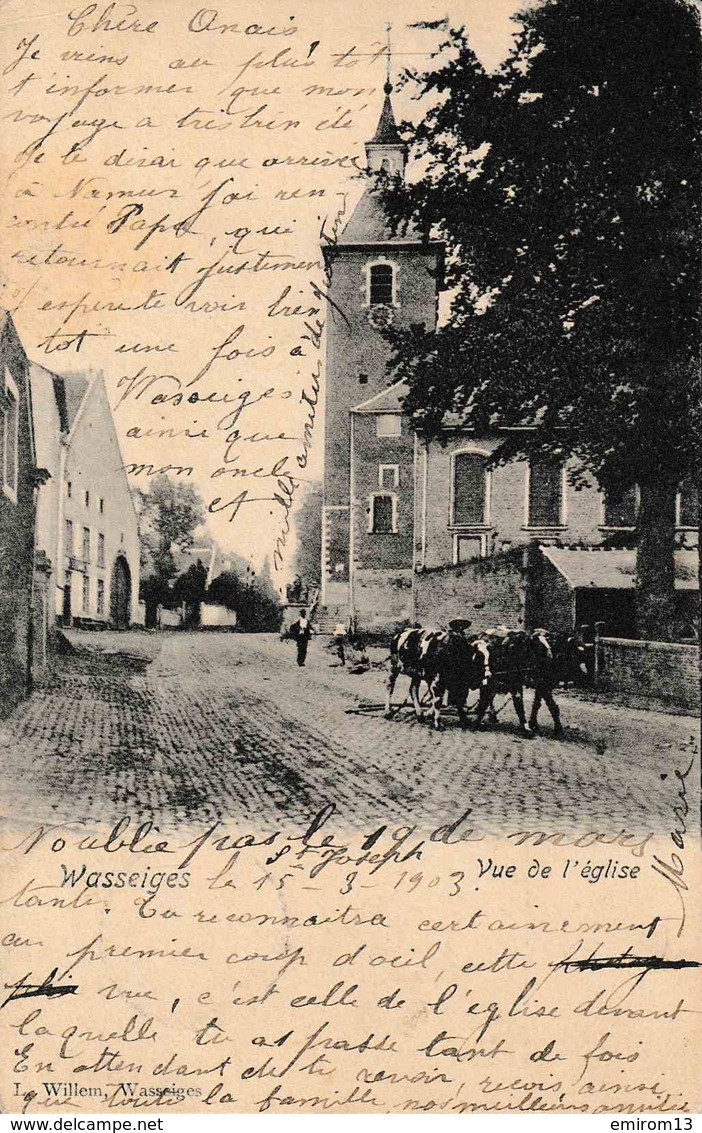 Chère Onais
Je viens au plus tot
t'informer que mon
voyage a tres bien été
Je te dirai que arrivée
à Namur j'ai ren
contré Papa, qui
retournait justement
J'espère te voir bien
tot une fois à
Wasseiges
ainsi que
mon oncle
et
mille amitiés de
Marie
N'oublie pas le 19 de mars
St Joseph
Wasseiges
Vue de l'église
le 15-3-1903
tante. Tu reconnaitra certainement
au premier coup d'oeil, cette
vue, c'est celle de l'église devant
laquelle tu as passe tant de fois
En attendant de te revoir, reçois ainsi
L. Willem, Wasseiges
que toute la famille, nos meilleurs amitié
emirom13